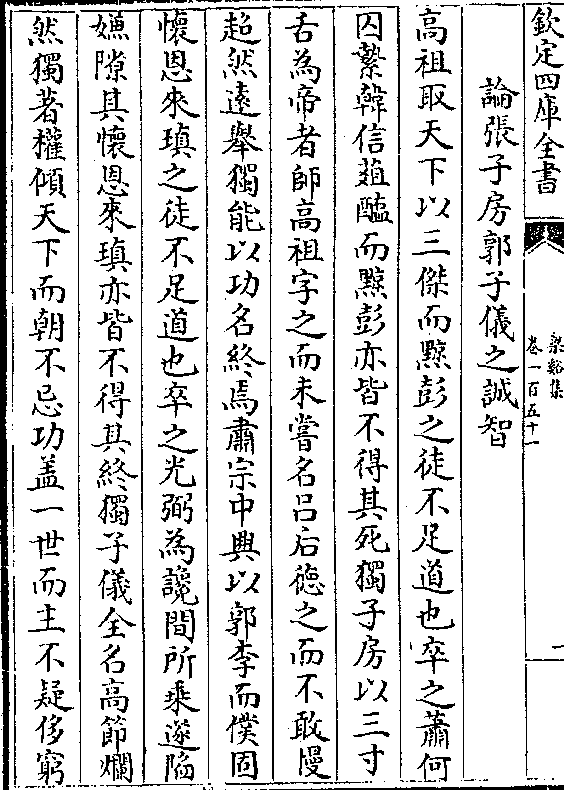 欽定四庫全書
梁谿集
卷一百五十一
論張子房郭子儀之誠智
高祖取天下以三傑而黥彭之徒不足道也卒之蕭何
囚縶韓信葅醢而黥彭亦皆不得其死獨子房以三寸
舌為帝者師高祖字之而未嘗名吕后徳之而不敢慢
超然逺舉獨能以功名終焉肅宗中興以郭李而僕固
懷恩來瑱之徒不足道也卒之光弼為讒間所乗遂陷
嫌隙其懷恩來瑱亦皆不得其終獨子儀全名髙節爛
然獨著權傾天下而朝不忌功盖一世而主不疑侈窮